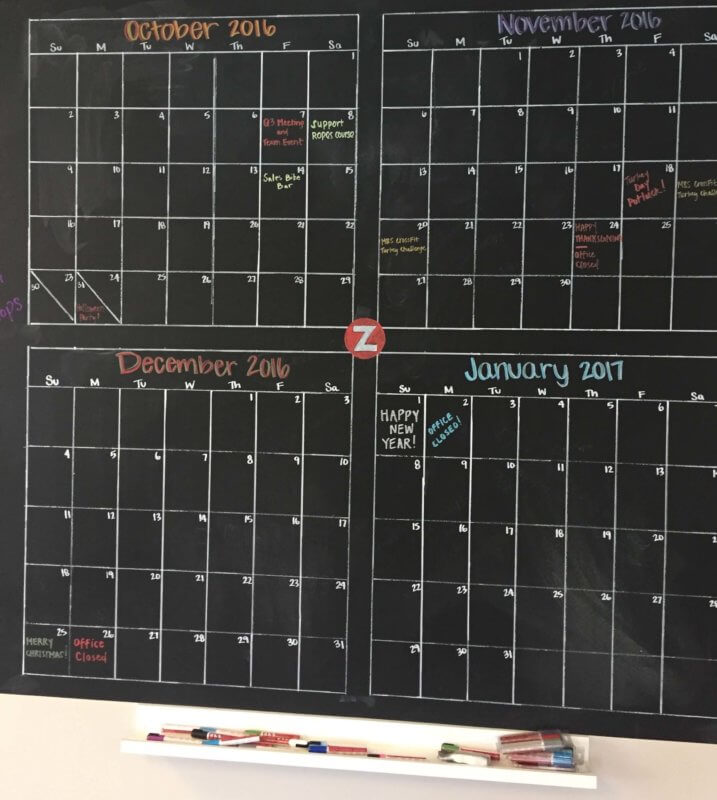 October 2016
Su M Tu W Th F Sa
1
2 3 4 5 6 7 8
Q3 Meeting
and
Team Event
Support
Ropes course
9 10 11 12 13 14 15
Sales Bike
Bar
16 17 18 19 20 21 22
23 24 25 26 27 28 29
30 31
Halloween
Party!
November 2016
Su M Tu W Th F Sa
1 2 3 4
6 7 8 9 10 11
13 14 15 16 17 18
Turkey
Day
Potluck!
MBS CrossFit
Turkey Challe
20 21 22 23 24 25
MBS CrossFit
Turkey Challenge
HAPPY
THANKSGIVING
Office
Closed
27 28 29 30
ops
Z
December 2016
Su M Tu W Th F Sa
1 2 3
4 5 6 7 8 9 10
11 12 13 14 15 16 17
18 19 20 21 22 23 24
25 26 27 28 29 30 31
MERRY
CHRISTMAS!
Office
Closed
January 2017
Su M Tu W Th F Sa
1 2 3 4 5 6
HAPPY
NEW
YEAR!
OFFICE
CLOSED!
8 9 10 11 12 13
15 16 17 18 19 20
22 23 24 25 26 27
29 30 31